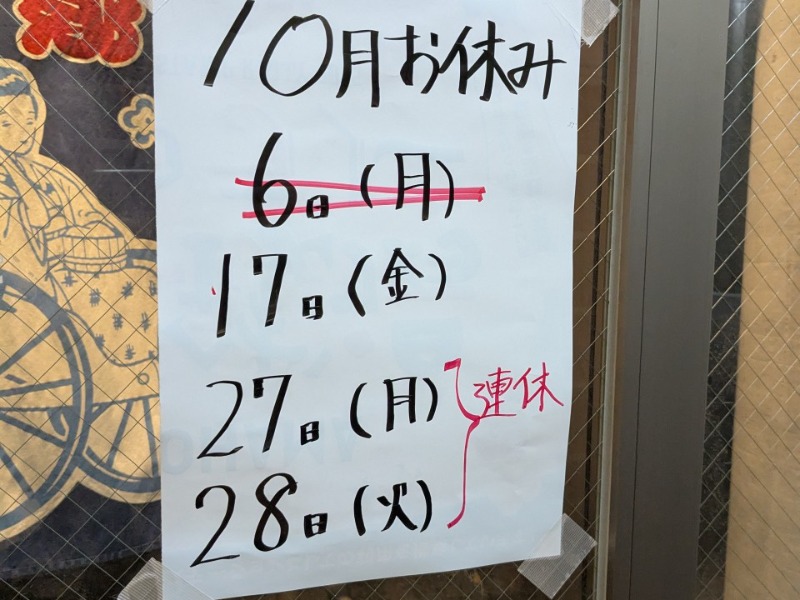 10月お休み
6日(月)
17日(金)
27日(月)
28日(火)
連休